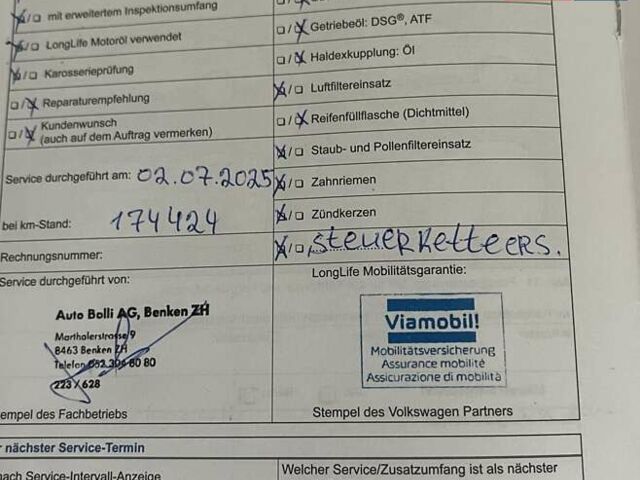 mit erweitertem Inspektionsumfang
LongLife Motoröl verwendet
Karosserieprüfung
Reparaturempfehlung
Kundenwunsch
(auch auf dem Auftrag vermerken)
Service durchgeführt am: 02.07.2025
bei km-Stand: 174424
Rechnungsnummer:
Service durchgeführt von:
Auto Bolli AG, Benken ZH
Marthalerstrasse 9
8463 Benken ZH
Telefon 052 80 80
223 / 628
empel des Fachbetriebs
Getriebeöl: DSG®, ATF
Haldexkupplung: Öl
Luftfiltereinsatz
Reifenfüllflasche (Dichtmittel)
Staub- und Pollenfiltereinsatz
Zahnriemen
Zündkerzen
Steuerketteers.
LongLife Mobilitätsgarantie:
Viamobil!
Mobilitätsversicherung
Assurance mobilité
Assicurazione di mobilità
Stempel des Volkswagen Partners
r nächster Service-Termin
nach Service-Intervall-Anzeige
Welcher Service/Zusatzumfang ist als nächster